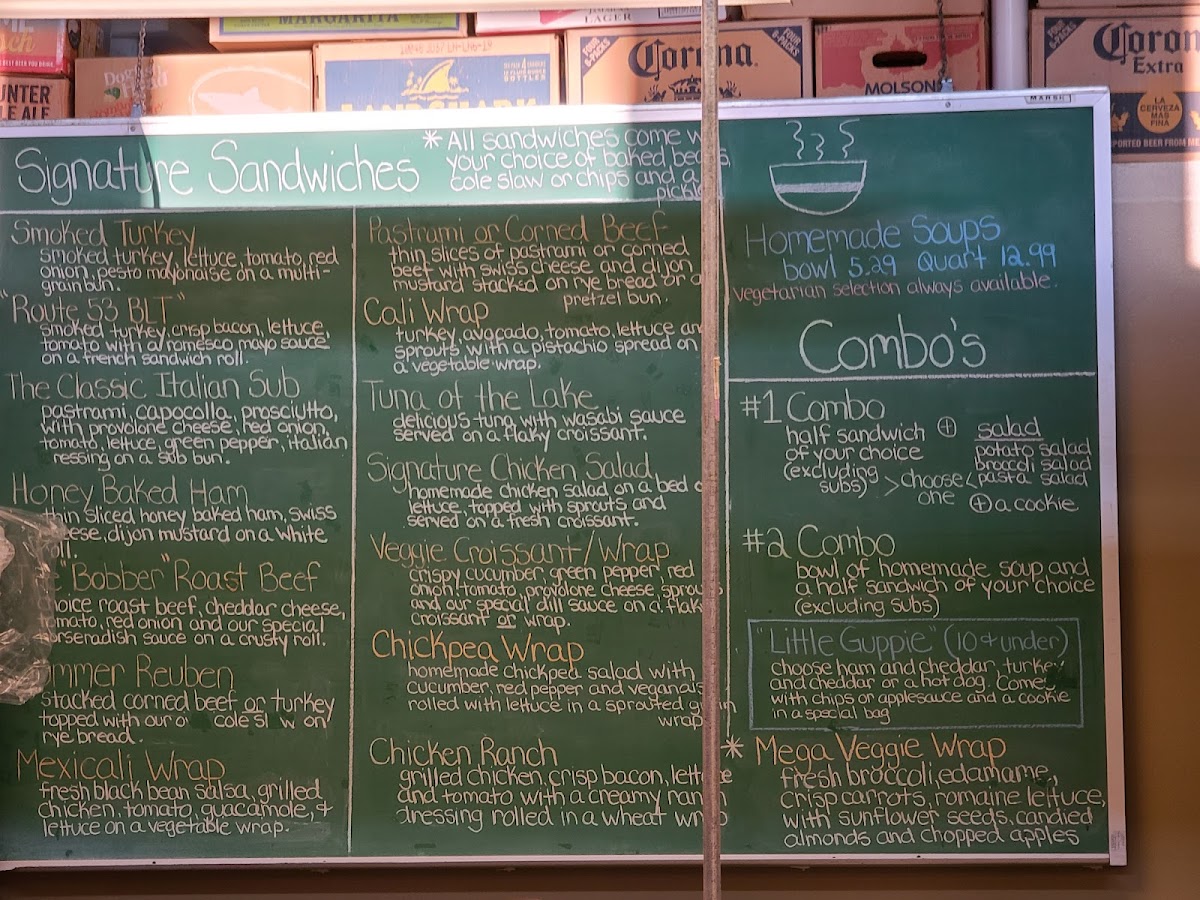 MARGARITA
LAGER
FOUR
6-PACKS
Corona
FOUR
6-PACKS
MOLSON
Corona
Extra
LA
CERVEZA
MAS
FINA
LANDSHARK
BOTTLES
ALE
MARSH
Signature Sandwiches
* All sandwiches come w
your choice of baked beans,
cole slaw or chips and a
pickle
Smoked Turkey
smoked turkey, lettuce, tomato, red
onion, pesto mayonaise on a multi-
grain bun.
"Route 53 BLT"
smoked turkey, crisp bacon, lettuce,
tomato with a romesco mayo sauce
on a french sandwich roll.
The Classic Italian Sub
pastrami, capocolla, prosciutto,
with provolone cheese, red onion,
tomato, lettuce, green pepper, italian
ressing on a sub bun.
Honey Baked Ham
thin sliced honey baked ham, swiss
eese, dijon mustard on a white
oll.
e "Bobber" Roast Beef
hoice roast beef, cheddar cheese,
omato, red onion and our special
orseradish sauce on a crusty roll.
mmer Reuben
stacked corned beef or turkey
topped with our o cole sl w on
rye bread.
Mexicali Wrap
fresh black bean salsa, grilled
chicken, tomato, guacamole, +
lettuce on a vegetable wrap.
Pastrami or Corned Beef
thin slices of pastrami or corned
beef with swiss cheese and dijon
mustard stacked on rye bread or a
pretzel bun.
Cali Wrap
turkey, avacado, tomato, lettuce an
sprouts with a pistachio spread on
a vegetable wrap.
Tuna of the Lake
delicious tuna with wasabi sauce
served on a flaky croissant.
Signature Chicken Salad
homemade chicken salad on a bed o
lettuce, topped with sprouts and
served on a fresh croissant.
Veggie Croissant/Wrap
crispy cucumber, green pepper, red
onion, tomato, provolone cheese, sprou s
and our special dill sauce on a flak
croissant or wrap.
Chickpea Wrap
homemade chickpea salad with
cucumber, red pepper and vegana s
rolled with lettuce in a sprouted g in
wrap
Chicken Ranch
grilled chicken, crisp bacon, lett e
and tomato with a creamy ran h
dressing rolled in a wheat wr p
Homemade Soups
bowl 5.29 Quart 12.99
vegetarian selection always available.
Combo's
#1 Combo
half sandwich
of your choice
(excluding
subs)
+
> choose <
one
salad
potato salad
broccoli salad
pasta salad
+ a cookie
#2 Combo
bowl of homemade soup and
a half sandwich of your choice
(excluding subs)
"Little Guppie" (10 & under)
choose ham and cheddar, turkey
and cheddar or a hot dog. Comes
with chips or applesauce and a cookie
in a special bag
* Mega Veggie Wrap
fresh broccoli, edamame,
crisp carrots, romaine lettuce,
with sunflower seeds, candied
almonds and chopped apples